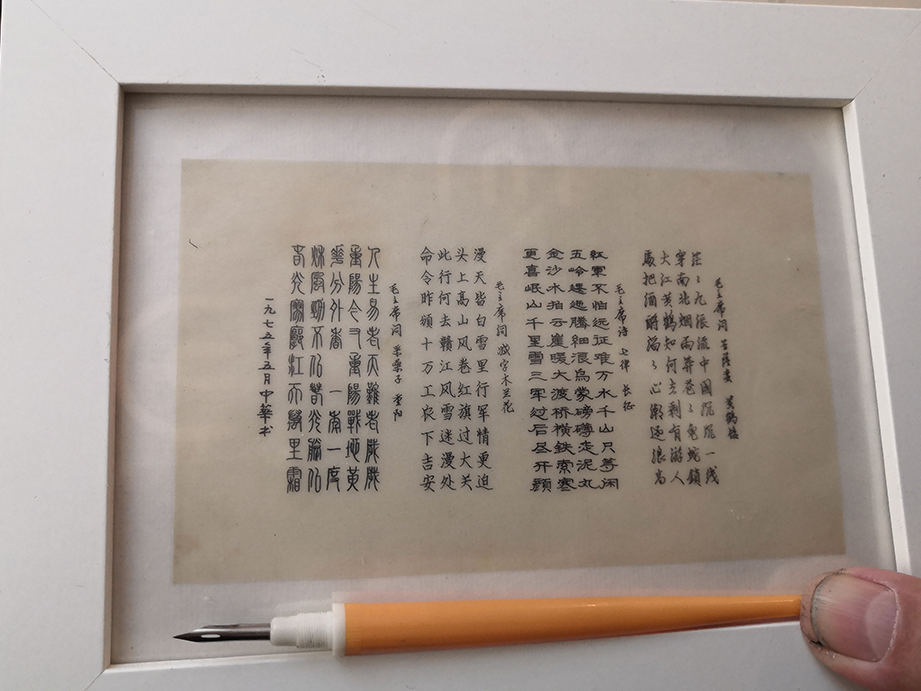 毛主席词 菩萨蛮 黄鹤楼
茫〻九派流中國沉沉一线
穿南北烟雨莽苍〻龟蛇鎖
大江黄鶴知何去剩有游人
處把酒酹滔〻心潮逐浪高
毛主席诗 七律 长征
红軍不怕远征难万水千山只等闲
五岭逶迤腾细浪乌蒙磅礴走泥丸
金沙水拍云崖暖大渡桥横鉄索寒
更喜岷山千里雪三军过后尽开颜
毛主席词 减字木兰花
漫天皆白雪里行军情更迫
头上高山风卷红旗过大关
此行何去赣江风雪迷漫处
命令昨颁十万工农下吉安
毛主席词 采桑子 重阳
人生易老天難老歲歲
重陽今又重陽戰地黄
花分外香一年一度
秋風勁不似春光勝似
春光寥廓江天萬里霜
一九七五年五月中華书